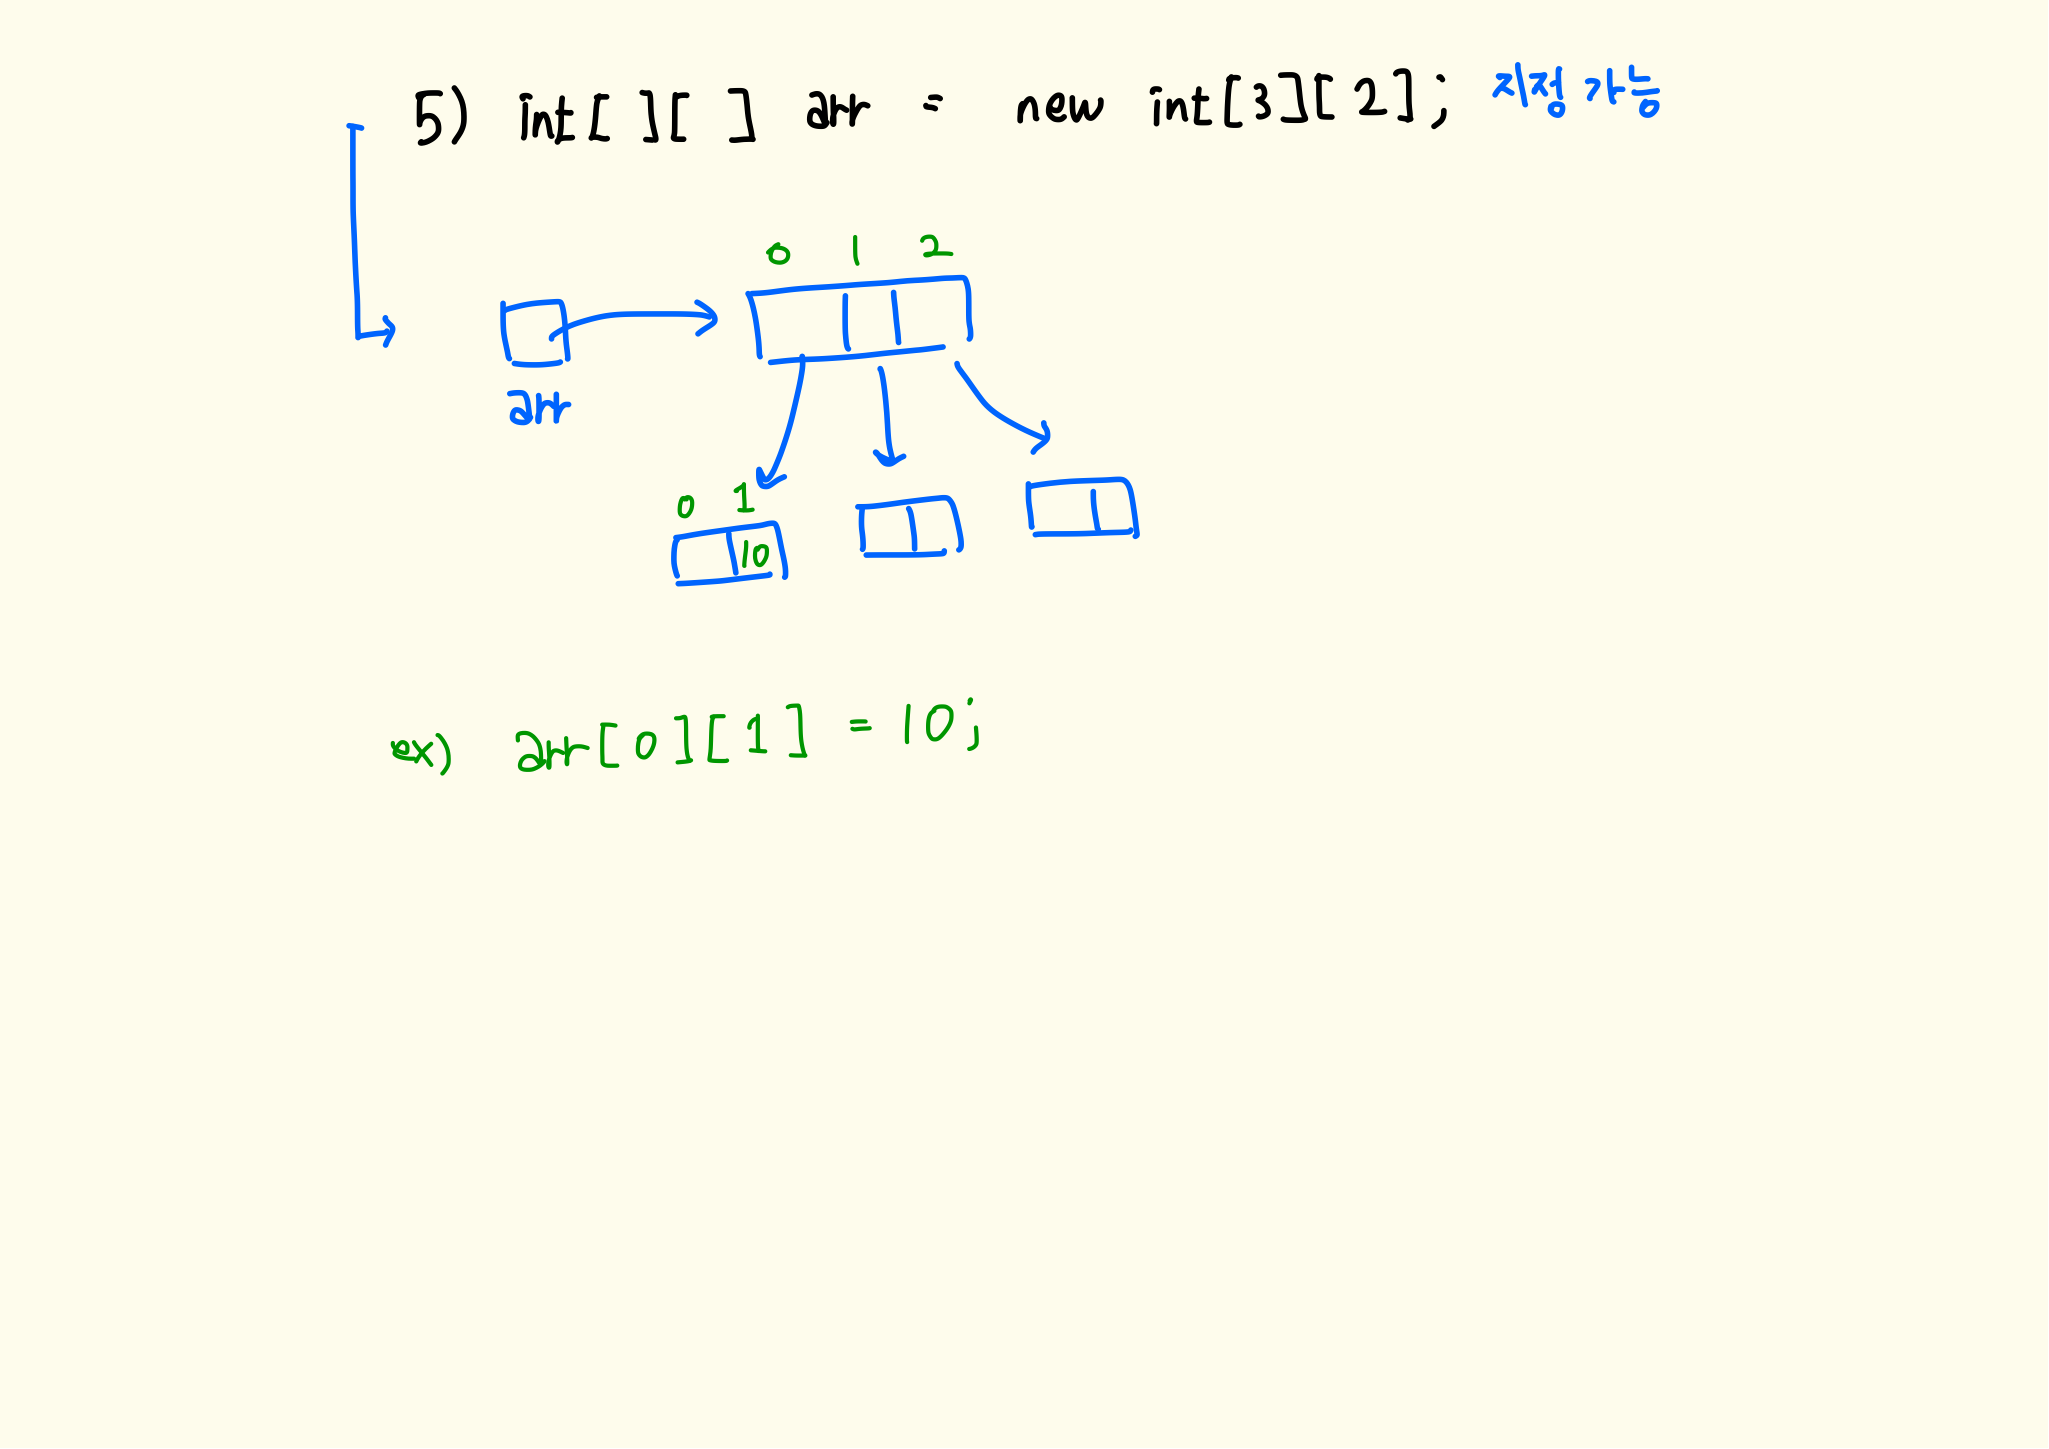 5) int[ ][ ] arr = new int[3][2]; 지정 가능
0 1 2
arr
0 1
10
ex) arr[0][1] = 10;